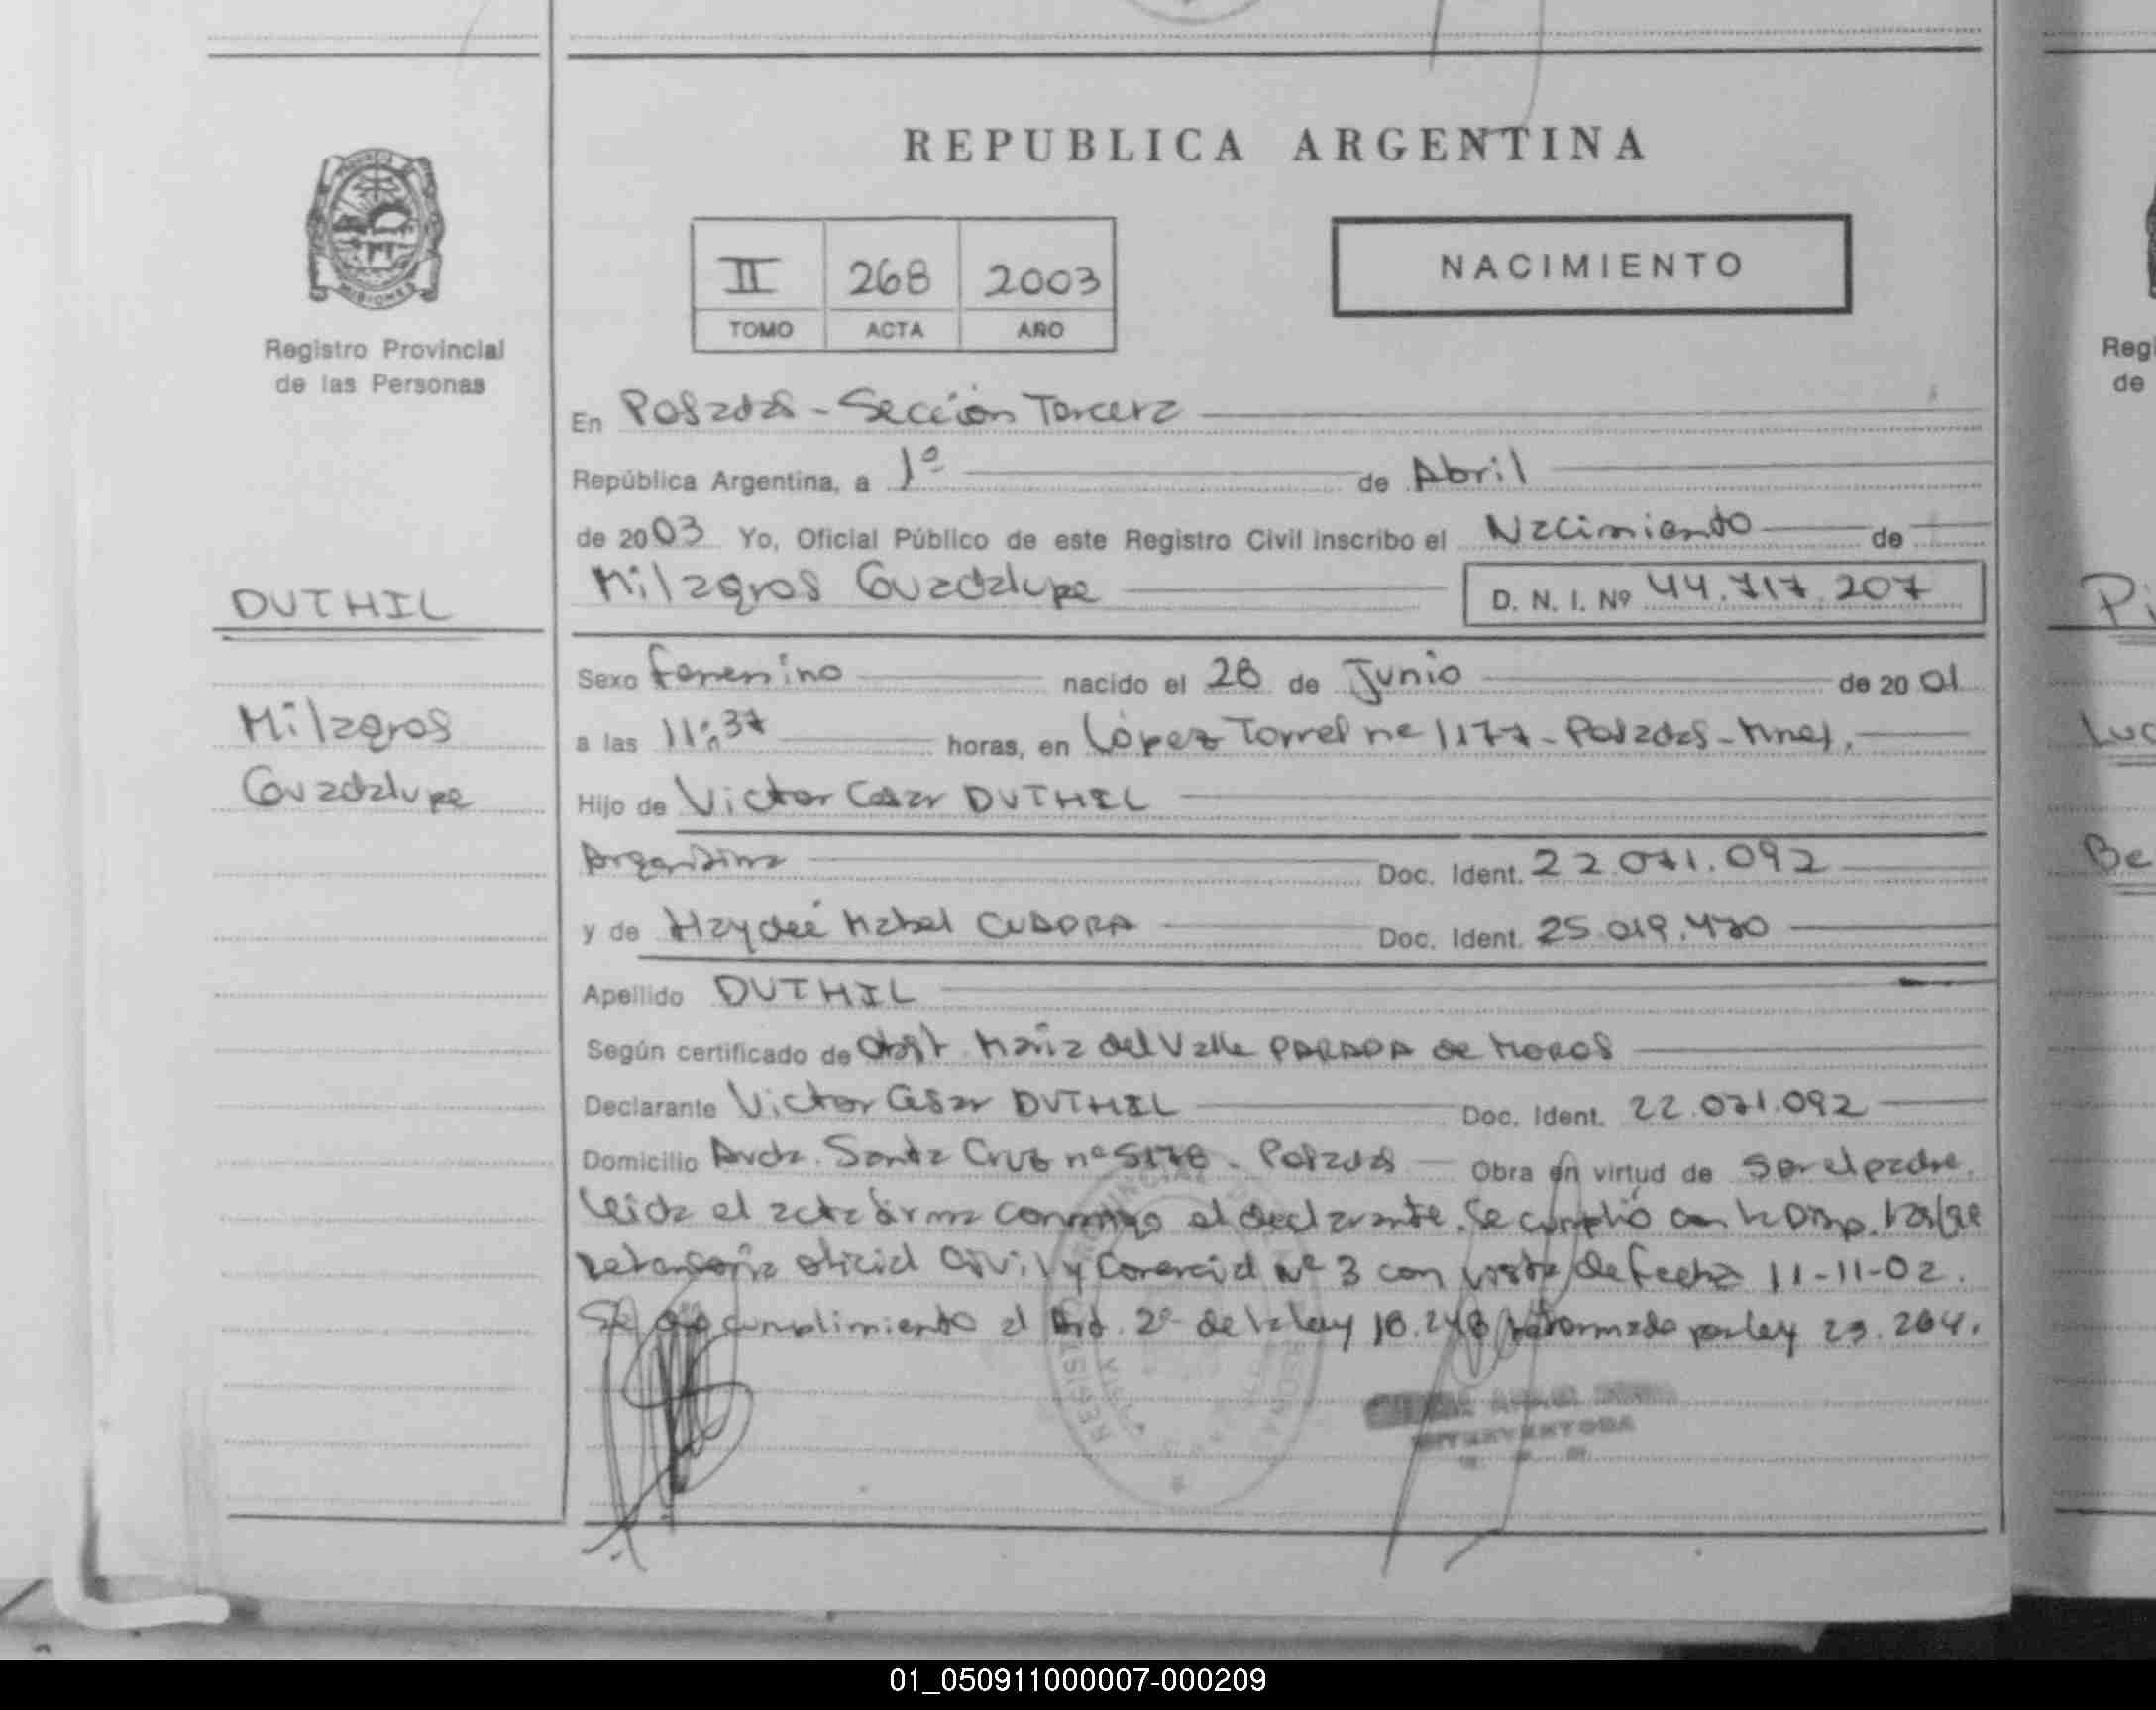 REPUBLICA ARGENTINA
MISIONES
Registro Provincial
de las Personas
II 268 2003
TOMO ACTA AÑO
NACIMIENTO
En Posadas - Sección Tercera
República Argentina, a 1º de Abril
de 2003 Yo, Oficial Público de este Registro Civil inscribo el Nacimiento de
Milagros Guadalupe D. N. I. Nº 44.717.207
DUTHIL
Milagros
Guadalupe
Sexo femenino nacido el 28 de Junio de 2001
a las 11:37 horas, en López Torres nº 1177 - Posadas - Mnes.
Hijo de Victor Cesar DUTHIL
Argentina Doc. Ident. 22.071.092
y de Haydeé Mabel CUADRA Doc. Ident. 25.019.470
Apellido DUTHIL
Según certificado de Obst. María del Valle PARADA de MOROS
Declarante Victor Cesar DUTHIL Doc. Ident. 22.071.092
Domicilio Avda. Santa Cruz nº 5178 - Posadas Obra en virtud de ser el padre.
Leida el acta firma conmigo el declarante. Se cumplió con la Disp.
oficial Civil y Comercial Nº 3 con vista de fecha 11-11-02.
Se dio cumplimiento al Art. 2º de la ley 18.248 reformada por ley 23.264.
Regi
de
Pi
Luc
Be
01_050911000007-000209